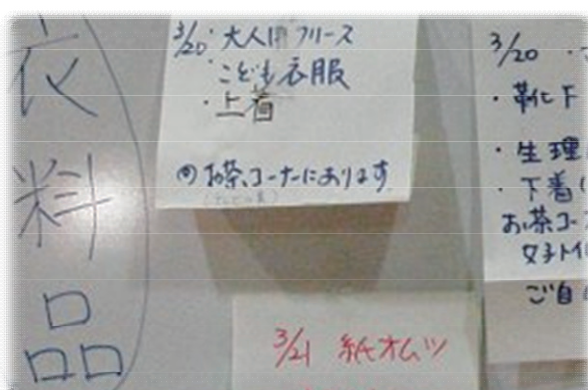 衣料品
3/20・大人用フリース
・こども衣服
・上着
◎お茶コーナーにあります
3/20・
・靴下
・生理
・下着
お茶コー
女子トイ
ご自
3/21 紙オムツ